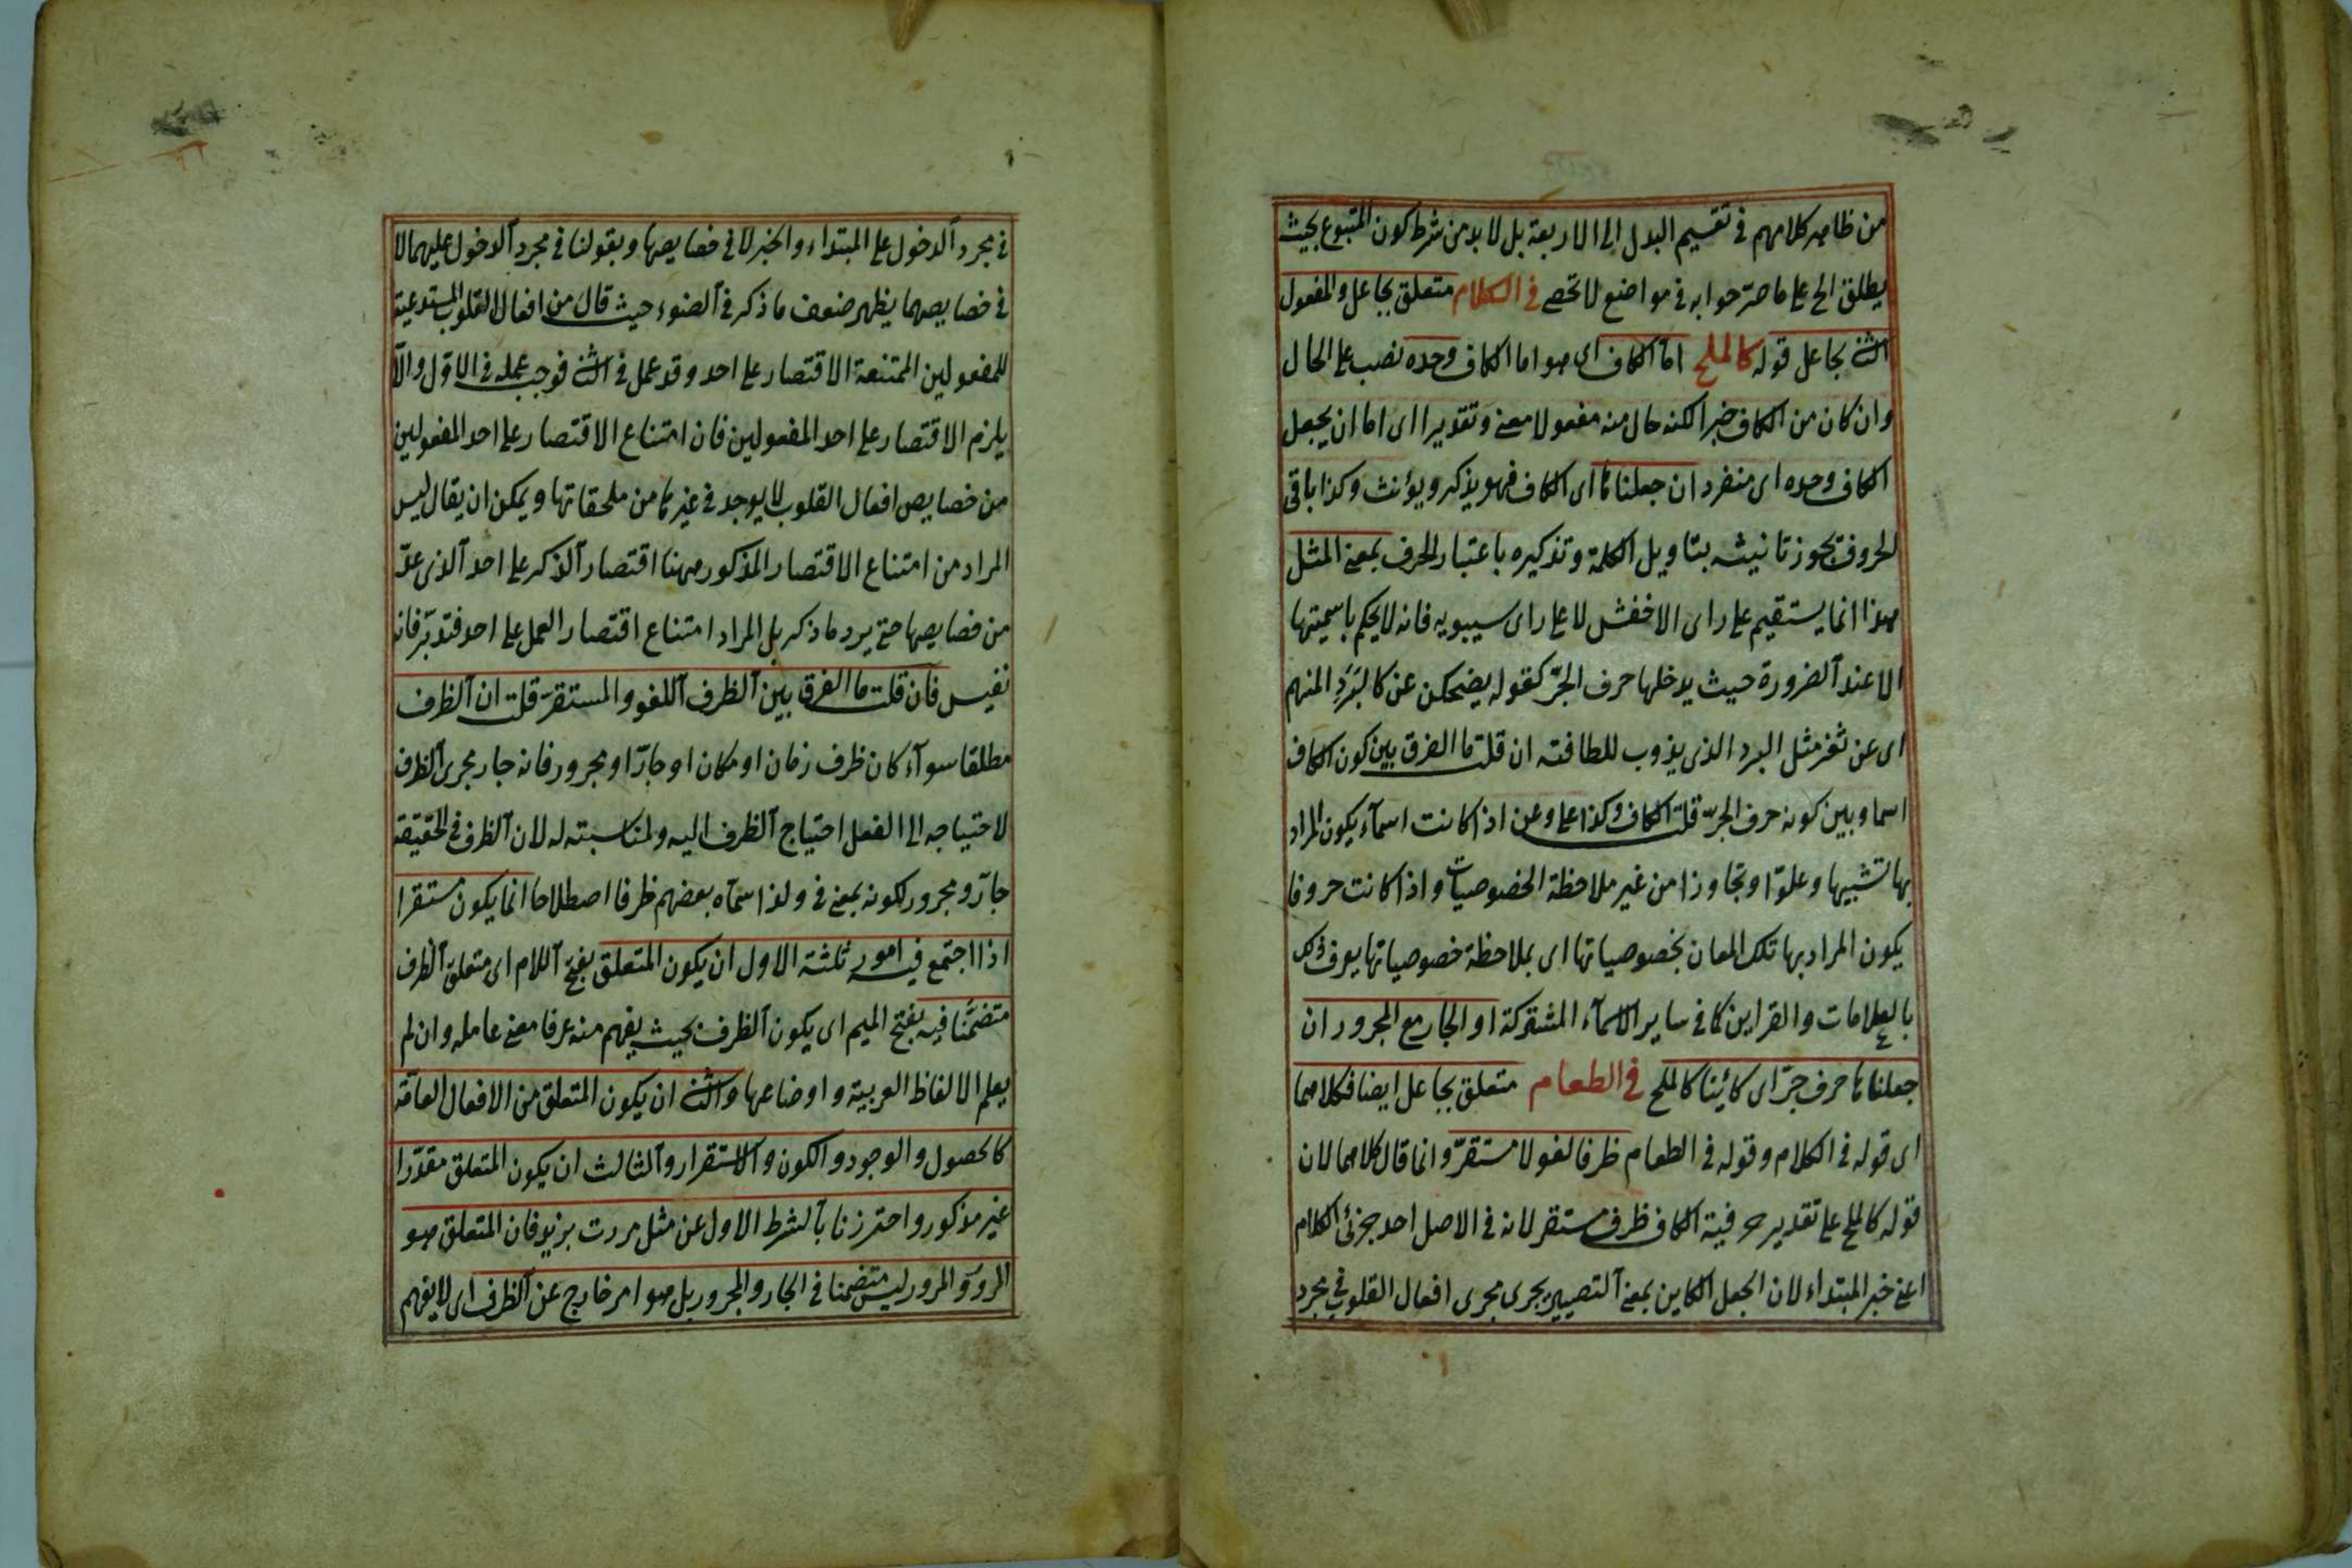 من ظاهر كلامهم في تقسيم البدل الى الاربعة بل لا بد من شرط كون المتبوع بحيث
يطلق الخ على ما صرّحوا به في مواضع لا تحصى في الكلام متعلق بجاعل والمفعول
الثنى بجاعل قوله كالملح اما الكاف اى هو اما الكاف وحده نصب على الحال
وان كان من الكاف خبرا لكنه حال منه مفعولا معنى وتقديرا اى اما ان يجعل
الكاف وحده اى منفرد ان جعلناها اى الكاف فهو يذكر ويؤنث وكذا باقى
الحروف يجوز تانيثه بتاويل الكلمة وتذكيره باعتبار الحرف بمعنى المثل
هذا انما يستقيم على راى الاخفش لا على راى سيبويه فانه لا يحكم باسميتها
الا عند الضرورة حيث يدخلها حرف الجرّ كقوله يضحكن عن كالبَرَدِ المنهم
اى عن ثغر مثل البرد الذى يذوب للطافته ان قلت ما الفرق بين كون الكاف
اسما وبين كونه حرف الجرّ قلت الكاف وكذا على وعن اذا كانت اسمآء يكون المراد
بها تشبيها وعلوّا وتجاوزا من غير ملاحظة الخصوصيات واذا كانت حروفا
يكون المراد بها تلك المعان بخصوصياتها اى بملاحظة خصوصياتها يعرف ذلك
بالعلامات والقراين كما في ساير الاسمآء المشتركة او الجار مع المجرور ان
جعلناها حرف جرّ اى كائينا كالملح في الطعام متعلق بجاعل ايضا فكلاهما
اى قوله في الكلام وقوله في الطعام ظرفا لغو لا مستقرّ وانما قال كلاهما لان
قوله كالملح على تقدير حرفية الكاف ظرف مستقر لانه في الاصل احد جزئى الكلام
اعنى خبر المبتداء لان الجعل الكاين بمعنى التصيير يجرى مجرى افعال القلوب في مجرد
في مجرد الدخول على المبتداء والخبر لا في خصايصها وبقولنا في مجرد الدخول عليهما لا
في خصايصهما يظهر ضعف ما ذكر في الضوء حيث قال من افعال القلوب المستدعية
للمفعولين الممتنعة الاقتصار على احد وقد عمل في الثنى فوجب عمله في الاوّل والّا
يلزم الاقتصار على احد المفعولين فان امتناع الاقتصار على احد المفعولين
من خصايص افعال القلوب لا يوجد في غيرها من ملحقاتها ويمكن ان يقال ليس
المراد من امتناع الاقتصار المذكور ههنا اقتصار الذكر على احد الذى عدّ
من خصايصها حتى يرد ما ذكر بل المراد امتناع اقتصار العمل على احد فتدبّر فانه
نفيس فان قلت ما الفرق بين الظرف اللغو والمستقرّ قلت ان الظرف
مطلقا سوآء كان ظرف زمان او مكان او جارّا ومجرور فانه جار مجرى الظرف
لاحتياجه الى الفعل احتياج الظرف اليه ولمناسبته له لان الظرف في الحقيقة
جارّ ومجرور لكونه بمعنى في ولذا سمّاه بعضهم ظرفا اصطلاحا انما يكون مستقرا
اذا اجتمع فيه امور ثلثة الاول ان يكون المتعلق بفتح اللام اى متعلق الظرف
متضمَّنا فيه بفتح الميم اى يكون الظرف بحيث يفهم منه عرفا معنى عامله وان لم
يعلم الالفاظ العربية واوضاعها والثنى ان يكون المتعلق من الافعال العامّة
كالحصول والوجود والكون والاستقرار والثالث ان يكون المتعلق مقدّرا
غير مذكور واحترزنا بالشرط الاول عن مثل مررت بزيد فان المتعلق هو
المرور والمرور ليس متضمنا في الجار والمجرور بل هو امر خارج عن الظرف اى لا يفهم